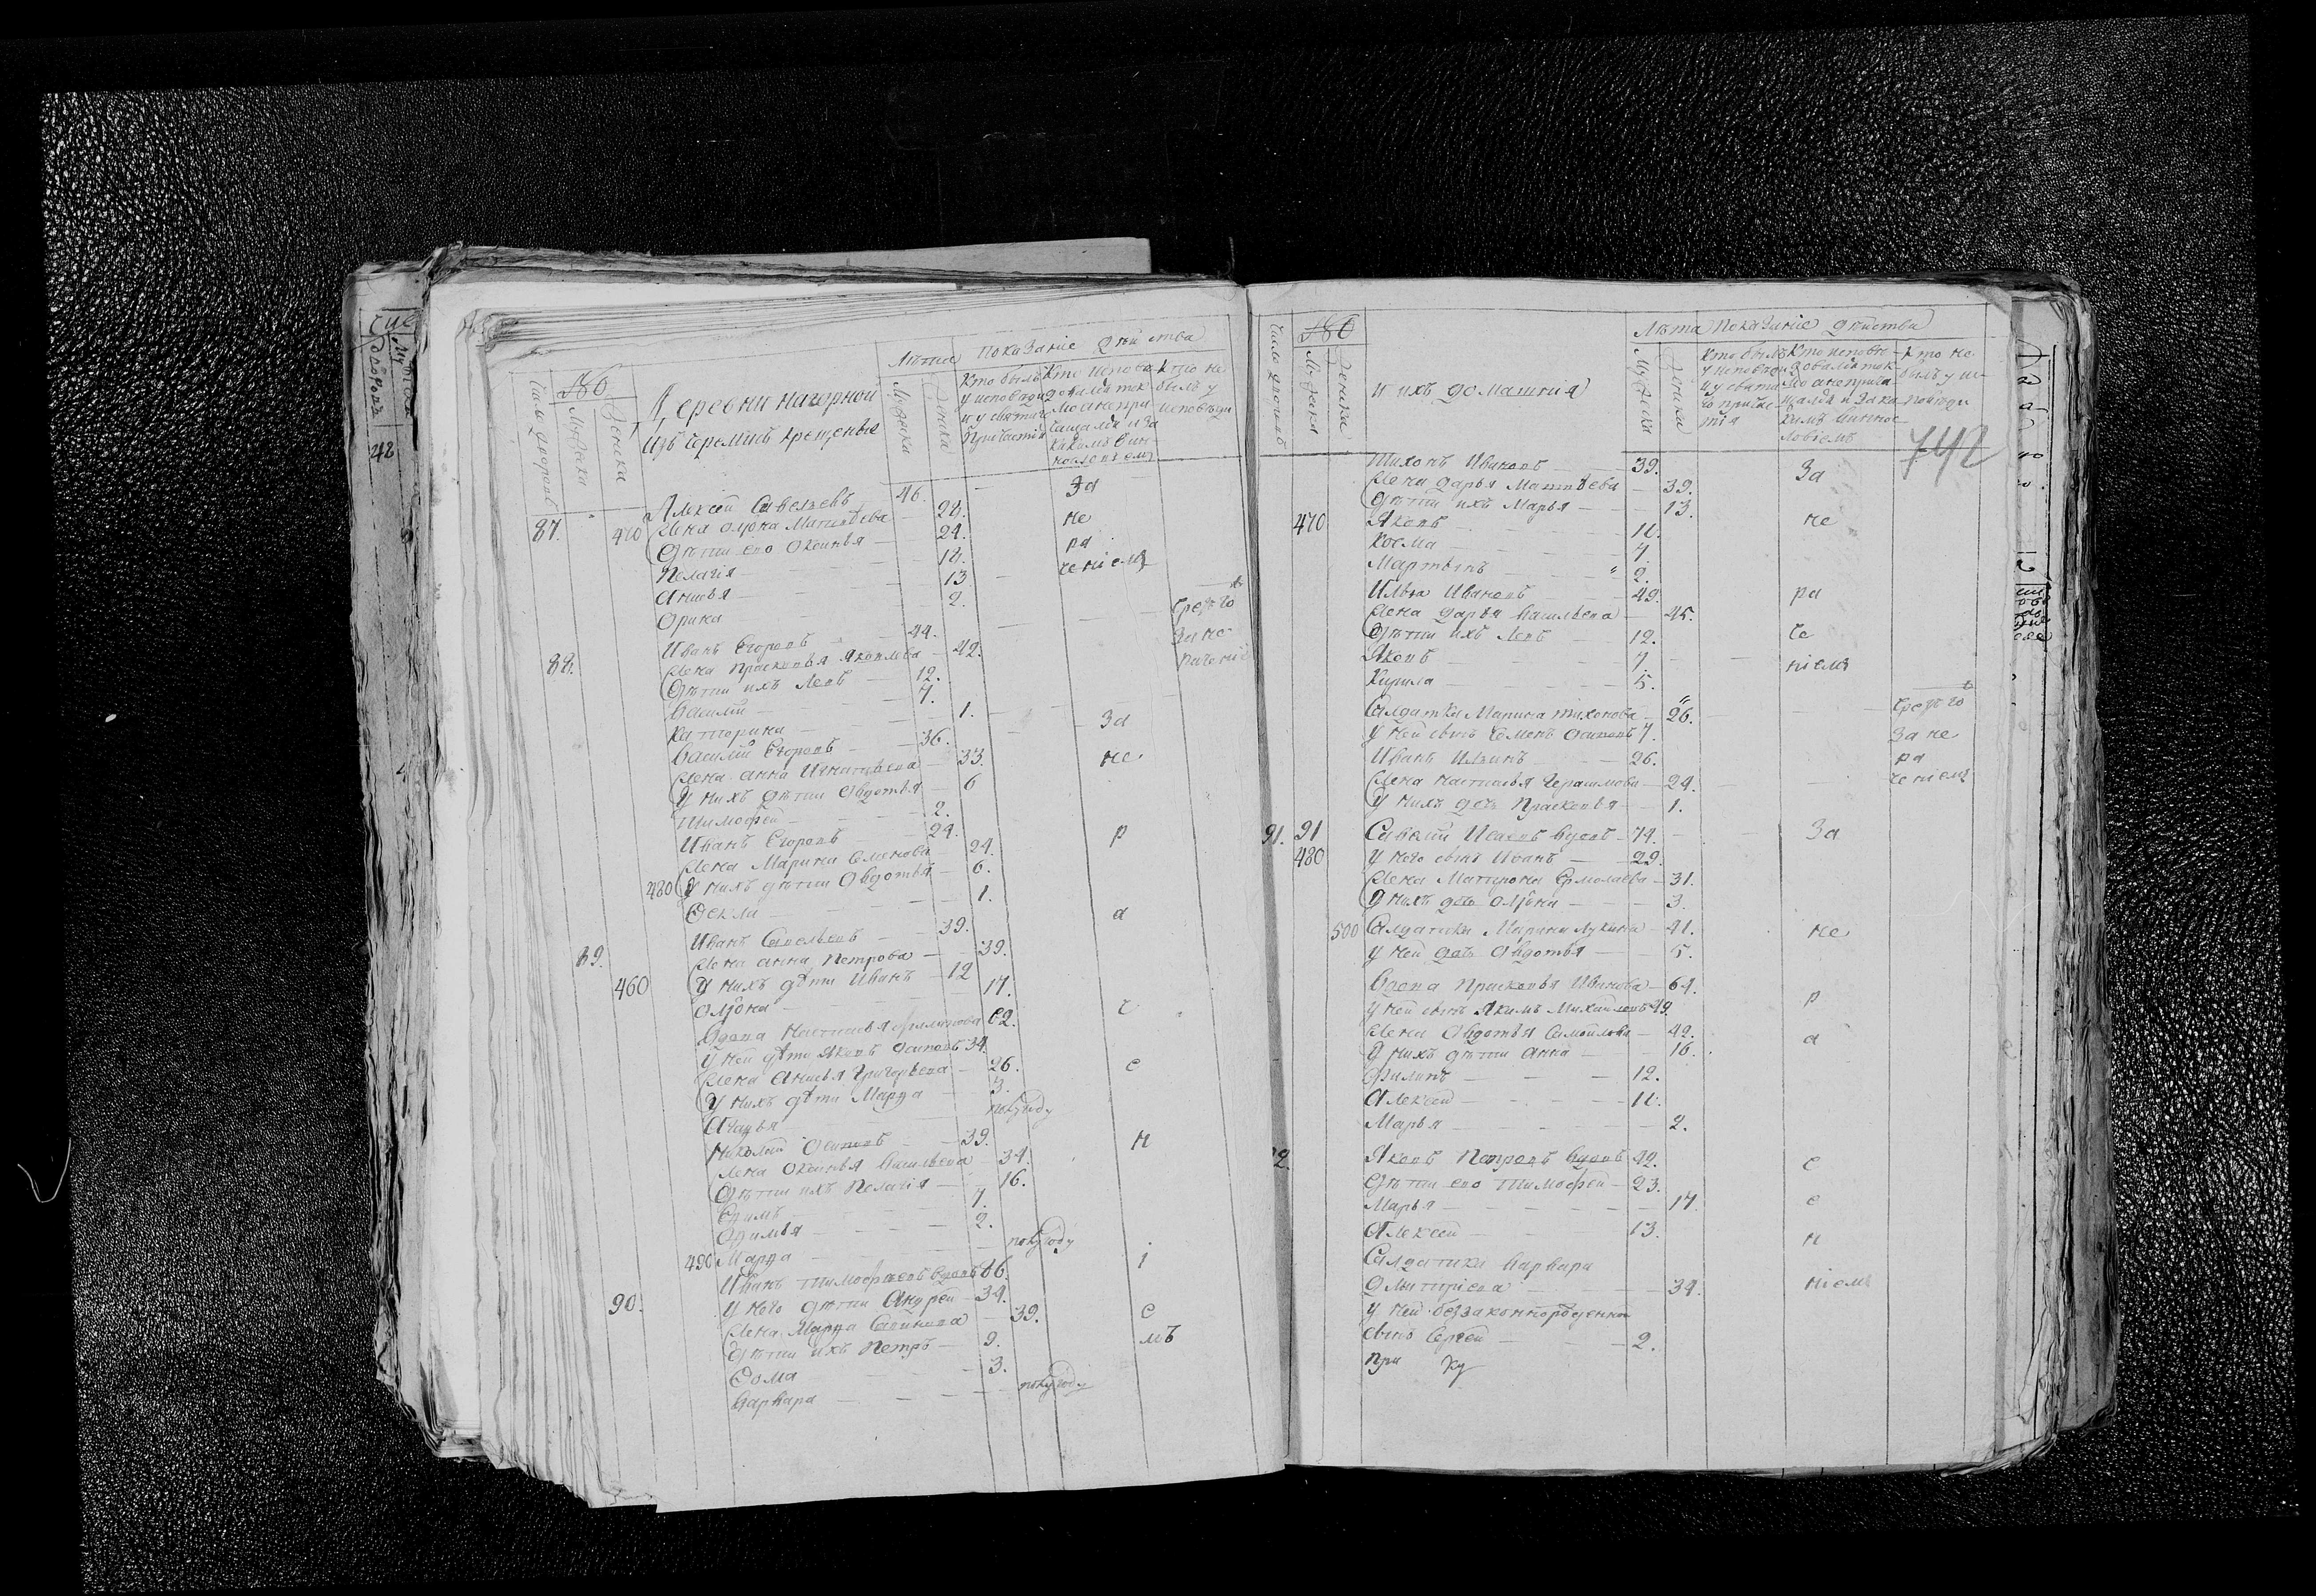 Число дворовъ
Мужска
Женска
Деревни нагорной
изъ Черемисъ крещеныя
Лѣта
Мужска
Женска
Показаніе дѣйства
Кто былъ
у исповѣди
и у святаго
Причастія
Кто испове
довался ток
мо а не при
чащался и за
какимъ вин
нословіемъ
Кто не
былъ у
исповѣди
87. 470 Алексѣй Савельевъ 46. За
Жена Олјона Матвѣева 28. не
Дѣти ево Оксинья 24. ра
Пелагія 18. ченіемъ
Анисья 13
Орина 2.
88. Иванъ Егоровъ 44.
Жена Прасковья Яковлева 42.
Дѣти ихъ Левъ 12.
Василій 7.
Катерина 1.
Василій Егоровъ 36. За
Жена Анна Игнатьева 33. не
У нихъ дѣти Овдотья 6
Тимофей 2.
Иванъ Егоровъ 24. р
Жена Марина Семенова 24.
480 У нихъ дѣти Овдотья 6.
Фекла 1.
89. Иванъ Савельевъ 39. а
Жена Анна Петрова 39.
460 У нихъ дѣти Иванъ 12
Олјона 17.
Вдова Настасья Филипова 62. ч
У ней дѣти Яковъ Осиповъ 34.
Жена Анисья Григорьева 26. е
У нихъ дѣти Марфа 3.
Агафья полугоду
Николай Осиповъ 39. н
Жена Оксинья Васильева 34.
Дѣти ихъ Пелагія 16.
Ефимъ 7.
Офимья 2.
490 Марфа полугоду
90. Иванъ Тимофѣевъ вдовъ 66. і
У него дѣти Андреи 34.
Жена Марфа Савинова 39. е
Дѣти ихъ Петръ 9. мъ
Фома 3.
Варвара полугоду
Число дворовъ
Мужска
Женска
и ихъ домашнія
Лѣта
Мужска
Женска
Показаніе дѣйства
Кто былъ
у исповѣди
и у свята
го причас
тія
Кто исповѣ
довался ток
мо а не прича
щался и за ка
кимъ винно
словіемъ
Кто не
былъ у ис
повѣди
742
Тихонъ Ивановъ 39. За
Жена Дарья Матвѣева 39.
Дѣти ихъ Марья 13.
470 Яковъ 10. не
Косма 7.
Мартынъ 2.
Илья Ивановъ 49. ра
Жена Дарья Васильева 45.
Дѣти ихъ Левъ 12. че
Яковъ 7. ніемъ
Кирила 5.
Салдатка Марина Тихонова 26.
У ней сынъ Семенъ Осиповъ 7. За не
Иванъ Ильинъ 26. ра
Жена Настасья Герасимова 24. ченіемъ
У нихъ дочь Прасковья 1.
91. 91 Савелій Исаевъ вдовъ 74. За
480 У него сынъ Иванъ 29.
Жена Матрона Ермолаева 31.
У нихъ дочь Олјона 3.
500 Салдатка Марина Лукина 41. не
У ней дочь Овдотья 5.
Вдова Прасковья Иванова 64.
У ней сынъ Якимъ Михайловъ 49. р
Жена Овдотья Самойлова 42. а
У нихъ дѣти Анна 16.
Филипъ 12.
Алексей 10.
Марья 2.
92. Яковъ Петровъ вдовъ 42. ч
Дѣти ево Тимофеи 23.
Марья 17. е
Алексей 13. н
Салдатка Варвара
Дмитріева 34. ніемъ
У ней беззаконнорожденной
сынъ Сергей 2.